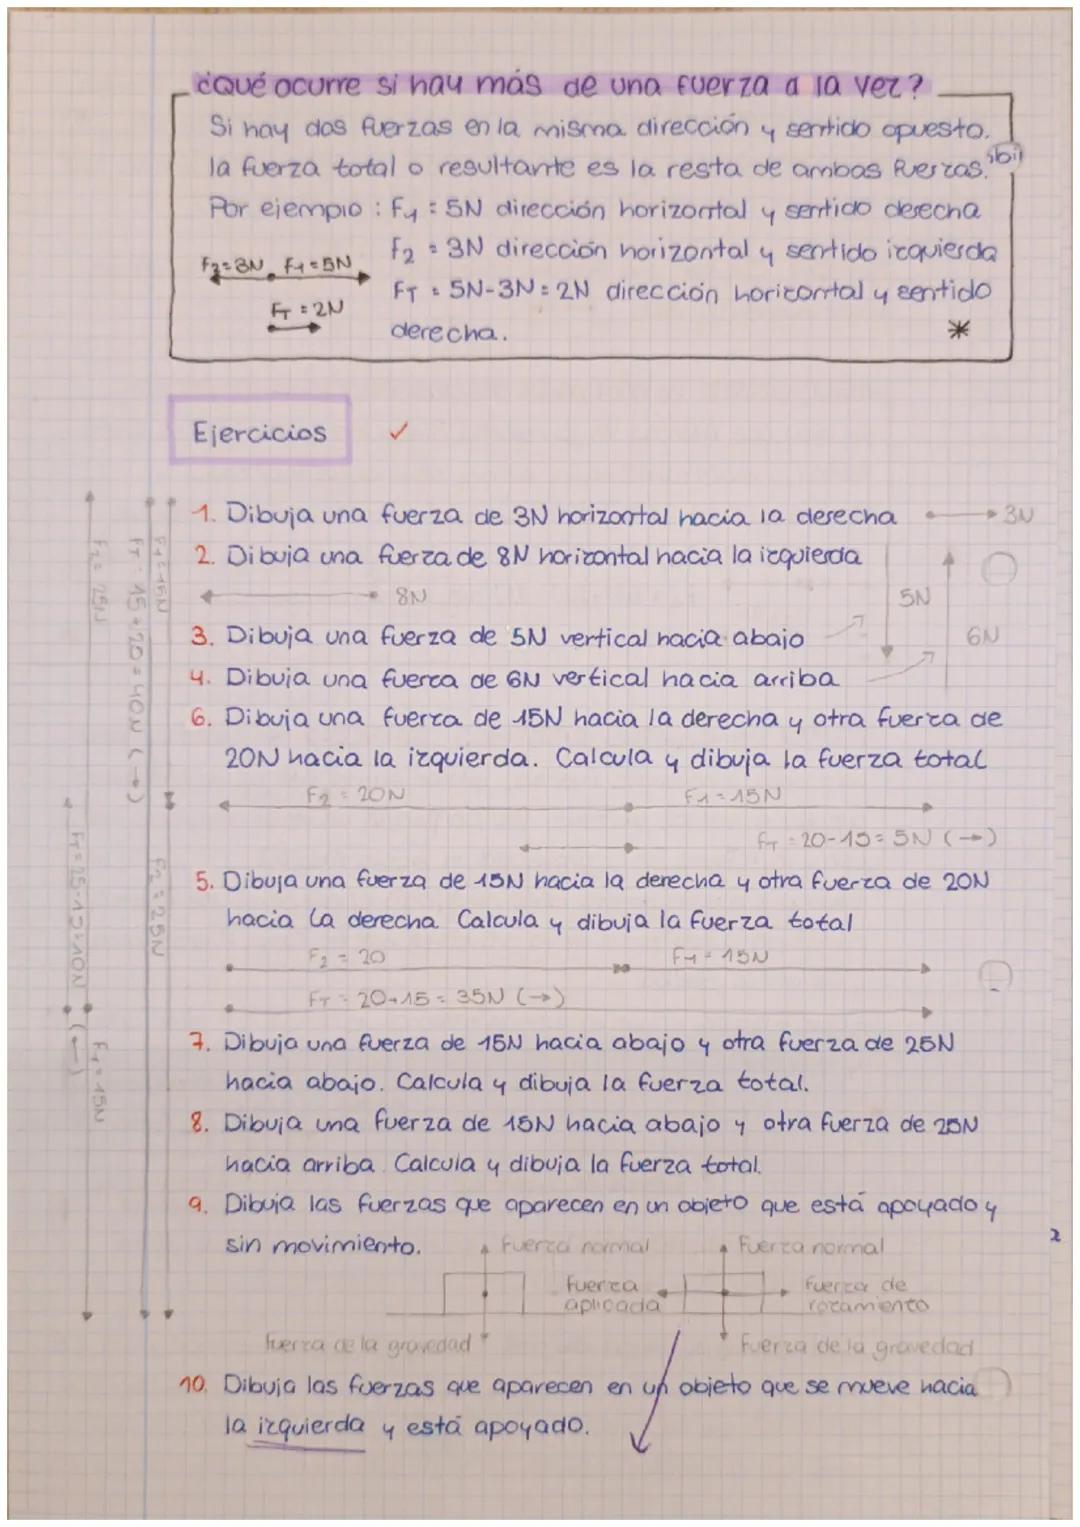 ¿Qué ocurre si hay más de una fuerza a la vez?
Si hay dos fuerzas en la misma dirección y sentido opuesto.
la fuerza total o resultante es la resta de ambas fuerzas.
Por ejemplo: F1 = 5N dirección horizontal y sentido derecha
F2 = 3N dirección horizontal y sentido izquierda
F2=3N F1=5N
FT = 5N-3N = 2N dirección horizontal y sentido
FT = 2N
derecha. *
Ejercicios ✓
1. Dibuja una fuerza de 3N horizontal hacia la derecha 3N
2. Dibuja una fuerza de 8N horizontal hacia la izquierda
8N
5N
3. Dibuja una fuerza de 5N vertical hacia abajo
6N
4. Dibuja una fuerza de 6N vertical hacia arriba
6. Dibuja una fuerza de 15N hacia la derecha y otra fuerza de
20N hacia la izquierda. Calcula y dibuja la fuerza total
F2 = 20N F1 = 15N
FT = 20-15 = 5N (→)
5. Dibuja una fuerza de 15N hacia la derecha y otra fuerza de 20N
hacia la derecha Calcula y dibuja la fuerza total
F2 = 20 F1 = 15N
FT = 20+15 = 35N (→)
7. Dibuja una fuerza de 15N hacia abajo y otra fuerza de 25N
hacia abajo. Calcula y dibuja la fuerza total.
8. Dibuja una fuerza de 15N hacia abajo y otra fuerza de 25N
hacia arriba. Calcula y dibuja la fuerza total.
9. Dibuja las fuerzas que aparecen en un objeto que está apoyado y
sin movimiento.
2
fuerza normal fuerza normal
fuerza
aplicada
fuerza de
rozamiento
fuerza de la gravedad fuerza de la gravedad
10. Dibuja las fuerzas que aparecen en un objeto que se mueve hacia
la izquierda y está apoyado.
F1 = 15N
F2 = 25N
FT = 15+20 = 40N (→)
F2 = 25N
F1 = 15N
FT = 25-15=10N (←)